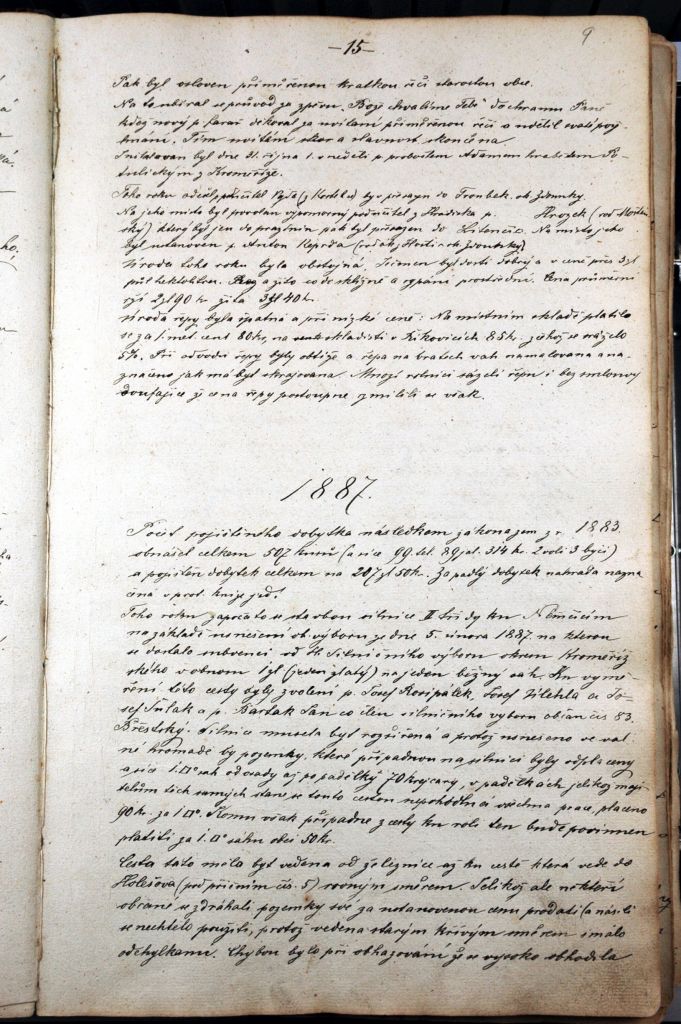 9
-15-
Pak byl osloven přiměřenou kratkou řečí starostou obce.
Na to ubíral se průvod za zpěvu "Bože chvalíme Tebe" do chramu Páně
kdež nový p. farař děkoval za uvítaní přiměřenou řečí a udělil svaté pož
ehnání. Tím uvítém skor a slavnost skončena
Instalovan byl dne 31. října t. r. v neděli p. proboštem Adamem hrabětem Po-
tulickým z Kroměříže.
Toho roku odešel p. učitel (z Kostelce) byv přesazen do Troubek. ob. Zdounky.
Na jeho místo byl povolán výpomocný podučitel z Hradiska p. Hrozek (rod
ský) který byl jen do prazdnin pak byl přeřazen do Litenčic. Na místo jeho
byl ustanoven p. Anton Keprda (rodák z Hostic ob. Zdounky)
Úroda toho roku byla obstojná. Ječmen byl dosti dobrý a v ceně přes 3 zl
půl hektolitru. a žito co do sklizně a sypání prostřední. Cena průměrní
rží 2 zl 90 kr žita 3 zl 40 kr.
Úroda řepy byla špatná a při nízké ceně. Na místním skladě platilo
se za 1. met. cent 80 kr, na skladišti v Říkovicích 85 kr. z čehož se sráželo
5%. Při odvodu řepy byly obtíže a řepa na vratech vah namalovana a na-
značeno jak má být skrajovana. Mnozí rolníci sázeli řepu i bez smlouvy
doufajíce že cena řepy postoupne, zmílili se však.
1887.
Počet pojištěného dobytka následkem zákona zem z r. 1883.
obnášel celkem 507 kusů (a sice 99 tel. 89 jal. 314 kr. 2 voli 3 býci)
a pojištěn dobytek celkem na 207 zl 50 kr. Za padlý dobytek nahrada nazna
čená v prot. knize jest.
Toho roku započato se stavbou silnice II třídy ku Němčicím
na základě usnesení ob. výboru ze dne 5. února 1887. na kterou
se dostalo subvenci od sl. Silničního výboru okresu Kroměříž
ského v obnosu 1 zl (jeden zlatý) na jeden běžný sáh. Ku vymě
ření této cesty byly zvoleni p. Josef Rosipálek, Josef Zlehla a Jo=
sef Šulak a p. Bartak Jan co člen silničního vyboru občan čís 83.
Břestský. Silnice musela byt rozšířená a protož usneseno ve val
né hromadě by pozemky, které připadnou na silnici byly odplaceny
a sice 1.□° sáh od osady až po padělky 70 krejcary, v padělkách jelikož maji
telům těch samych stane se touto cestou nepohodlna všechna prace, placeno
90 kr. za 1□°. Komu však připadne z cesty ku roli ten bude povinnen
platiti za 1.□° sáhu obci 50 kr.
Cesta tato měla byt vedena od železnice až ku cestě která vede do
Holešova (pod příčním čís. 5) rovným směrem. Jelikož ale někteří
občané se zdráhali pozemky své za ustanovenou cenu prodati (a násilí
se nechtělo použiti, protož vedena starým křivým směrem s málo
odchylkami. Chybou bylo při obhazování že se vysoko obhodila